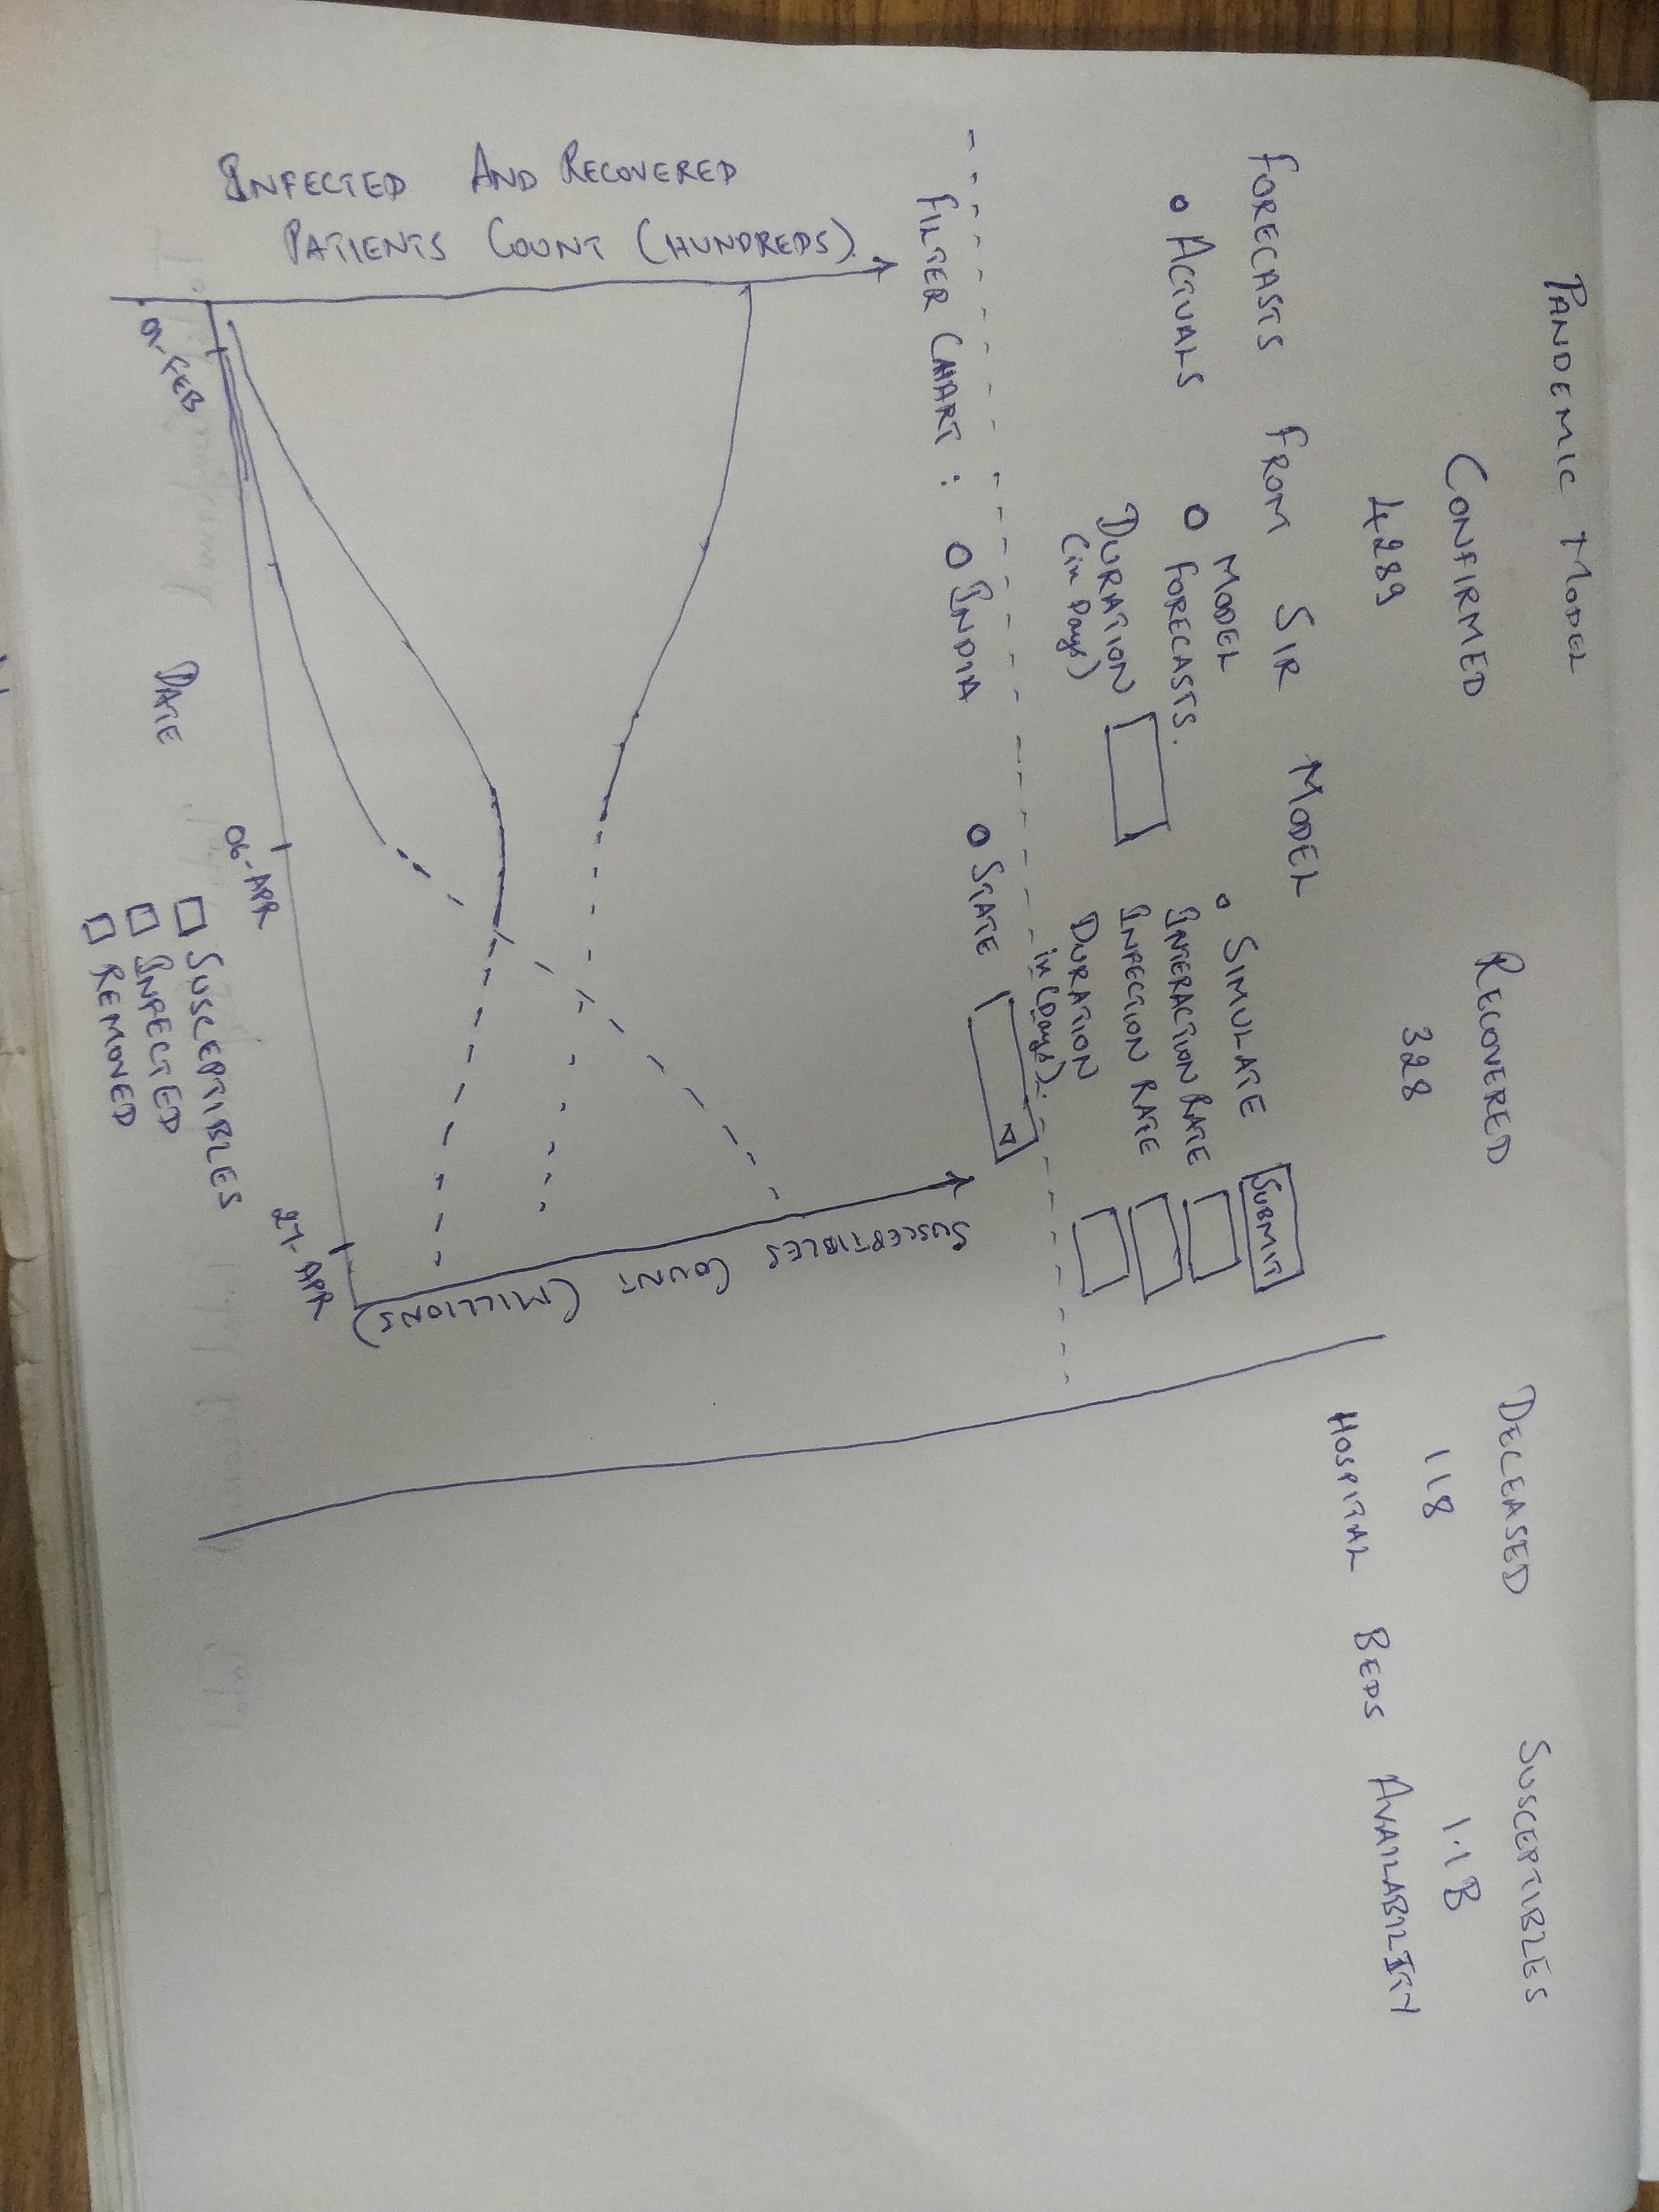 PANDEMIC MODEL
CONFIRMED RECOVERED DECEASED SUSCEPTIBLES
4289 328 118 1.1B
HOSPITAL BEDS AVAILABILITY
FORECASTS FROM SIR MODEL
ACTUALS
MODEL
FORECASTS.
DURATION
(in Days)
SIMULATE SUBMIT
INTERACTION RATE
INFECTION RATE
DURATION
in (Days).
FILTER CHART : INDIA STATE
INFECTED AND RECOVERED
PATIENTS COUNT (HUNDREDS)
SUSCEPTIBLES COUNT (MILLIONS)
01-FEB
06-APR
27-APR
DATE
SUSCEPTIBLES
INFECTED
REMOVED